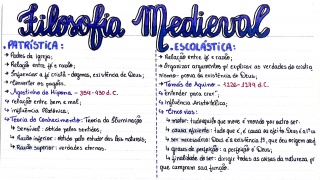 Filosofia Medieval
• PATRÍSTICA:
→ Padres da Igreja;
→ Relação entre fé e razão;
→ Influenciar a fé cristã - dogmas, existência de Deus;
→ Converter os pagãos.
• Agostinho de Hipona - 354-430 d.C.
↳ relação entre bem e mal;
↳ influência Platônica;
↳ Teoria do Conhecimento: Teoria da Iluminação
↳ Sensível: obtido pelos sentidos;
↳ Razão inferior: obtido pelo estudo das leis naturais;
↳ Razão superior: verdades eternas.
• ESCOLÁSTICA:
→ Relação entre fé e razão;
→ Organizar argumentos p/ explicar as verdades do cristia
nismo - prova da existência de Deus;
• Tomás de Aquino - 1226-1274 d.C.
↳ Entender para crer;
↳ influência Aristotélica;
↳ Cinco vias:
↳ motor: tudo aquilo que move é movido por outro ser.
↳ causa eficiente: tudo que é, é causa ou efeito. Deus é a 1ª
↳ ser necessário: Deus é a existência, que deu origem
↳ graus de perfeição.
↳ finalidade do ser: dirige todas as coisas da natureza, p/
que cumpram sua função.